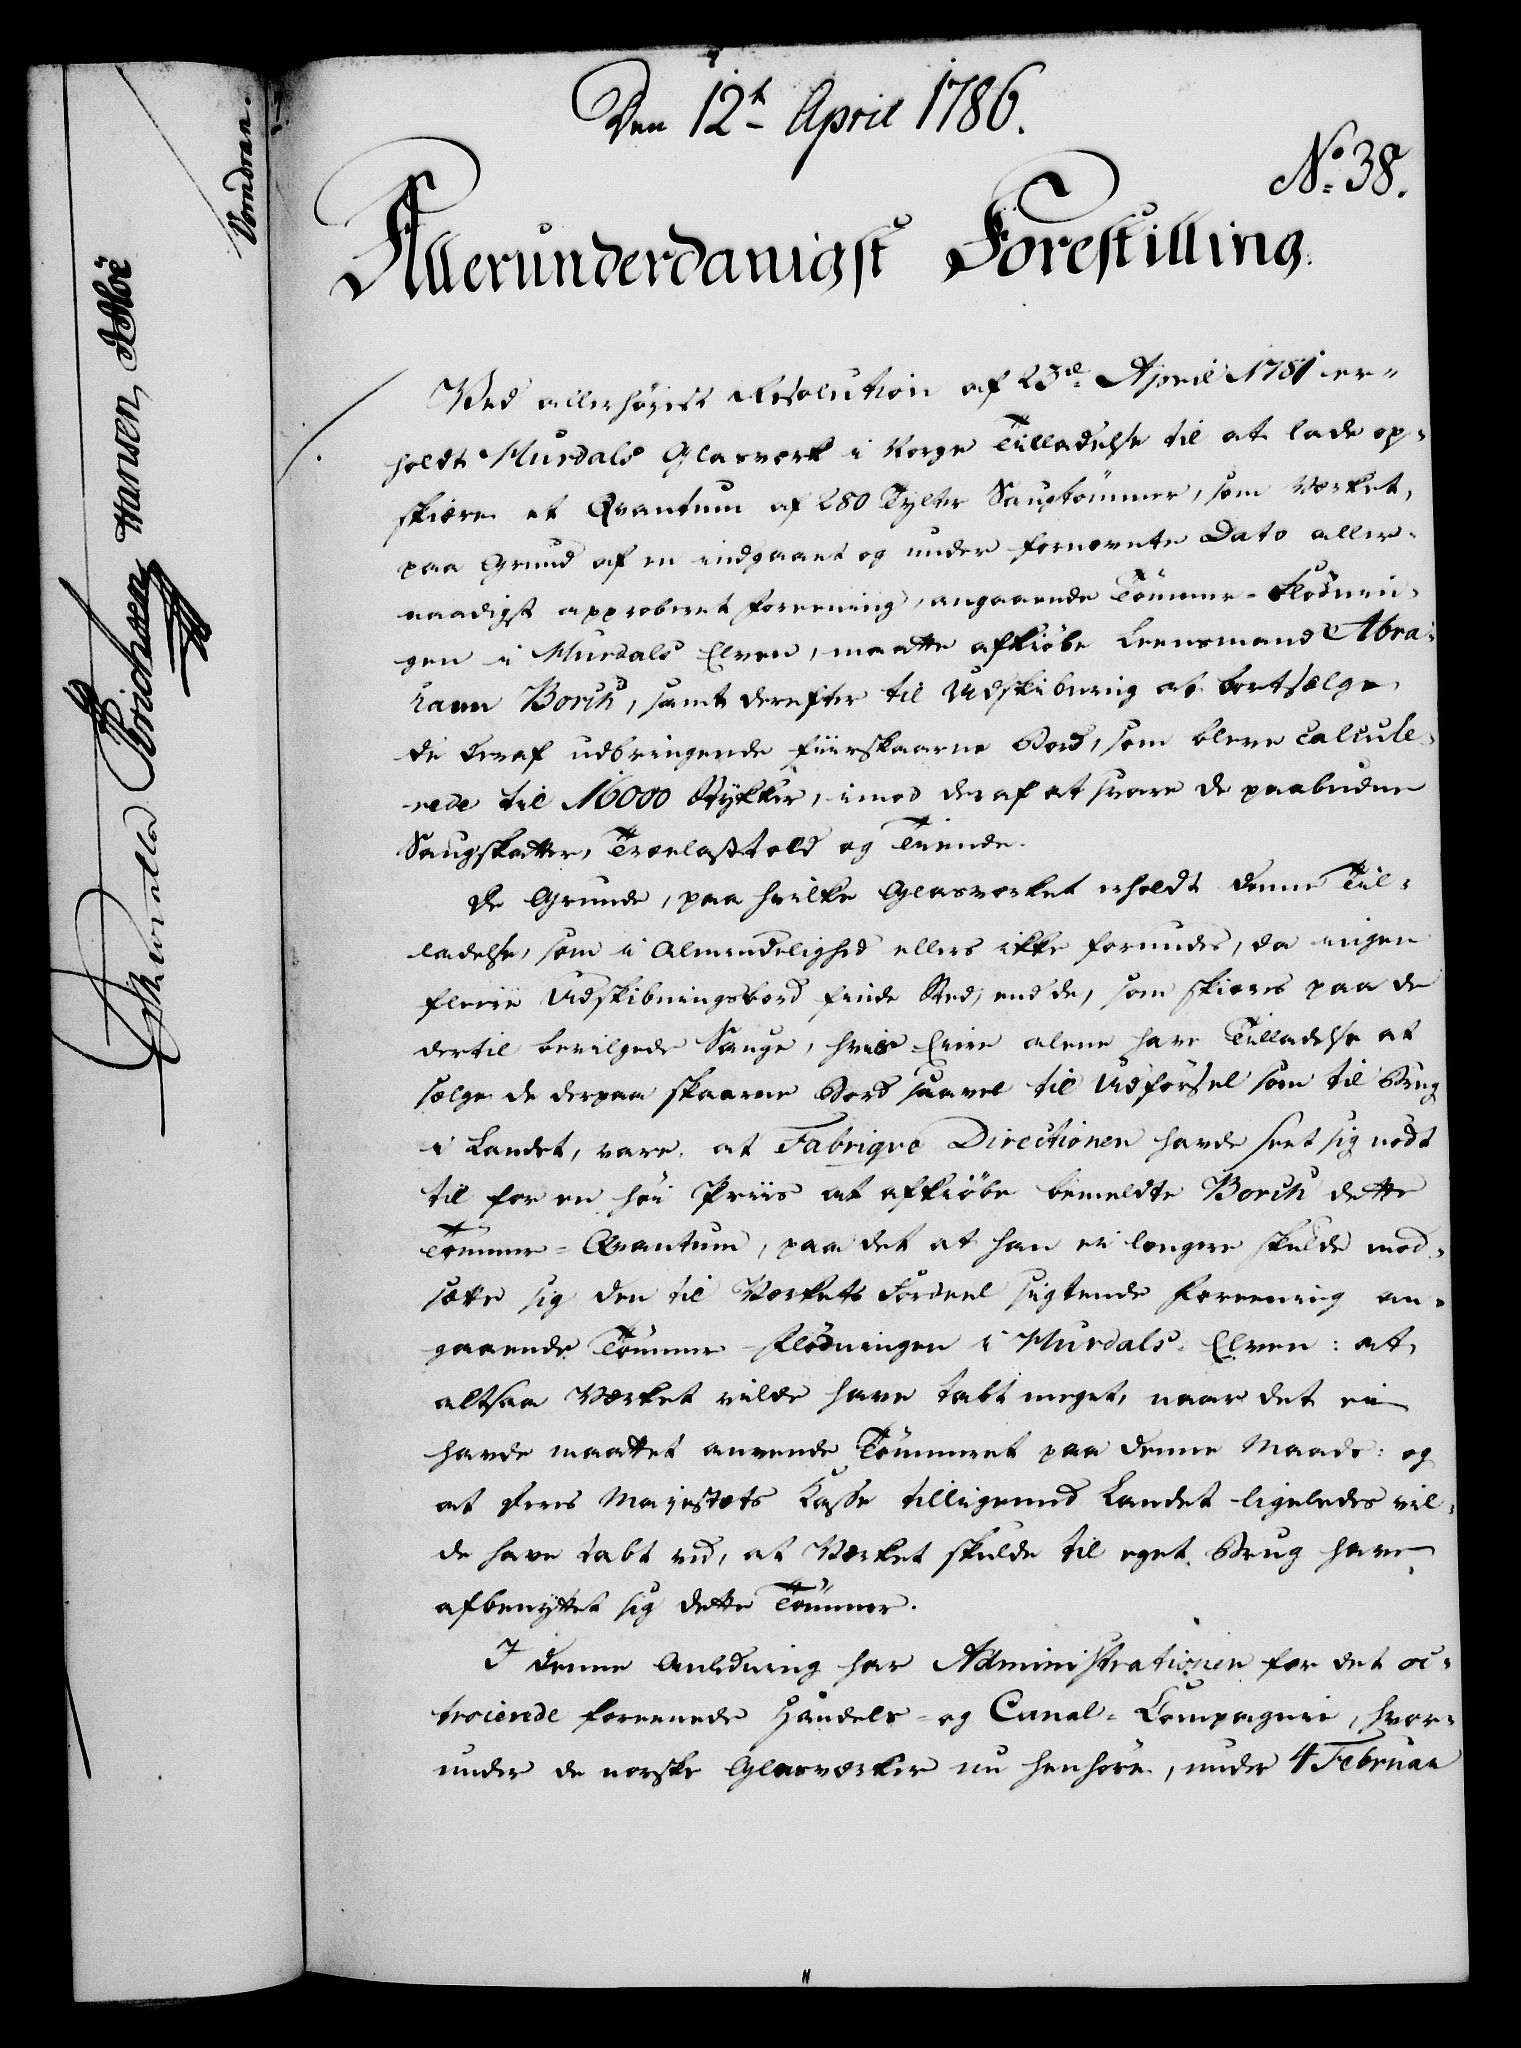 Den 12t. April 1786.
No. 38.
Allerunderdanigst Forestilling.
Ved allerhøyest Resolution af 23de April 1781 er-
holdt Hurdals Glasværk i Norge Tilladelse til at lade op-
skiære et Qvantum af 280 Tylter Saugtømmer, som Værket,
paa Grund af en indgaaet og under fornævnte Dato aller-
naadigst approberet Foreening, angaaende Tømmer-Flødnin-
gen i Hurdals Elven, maatte afkiøbe Leensmand Abra-
ham Borch, samt derefter til Udskibning at bortsælge
de deraf udbringende fiirskaarne Bord, som bleve calcule-
rede til 16000 Stykker, imod deraf at svare de paabudne
Saugskatter, Trælasttold og Tiende.
De Grunde, paa hvilke Glasværket erholdt denne Til-
ladelse, som i Almindelighed ellers ikke forundes, da ingen
fleere Udskibningsbord finde Sted, end de, som skiæres paa de
dertil bevilgede Sauge, hvis Eiere alene have Tilladelse at
sælge de derpaa skaarne Bord saavel til Udførsel som til Brug
i Landet, vare: at Fabriqve Directionen havde seet sig nødt
til for en høi Priis at afkiøbe bemeldte Borch dette
Tømmer-Qvantum, paa det at han ei længere skulde mod-
sætte sig den til Værkets Fordeel sigtende Foreening an-
gaaende Tømmer-Flødningen i Hurdals-Elven: at
altsaa Værket vilde have tabt meget, naar det ei
havde maattet anvende Tømmeret paa denne Maade: og
at Deres Majestæts Kasse tilligemed Landet ligeledes vil-
de have tabt ved, at Værket skulde til eget Brug have
afbenyttet sig dette Tømmer.
I denne Anledning har Administrationen for det oc-
troierede foreenede Handels- og Canal-Compagnie, hvor-
under de norske Glasværker nu henhøre, under 4 Februar
Vendran.
Hansen
Erichsen